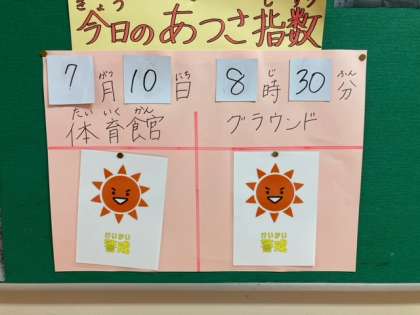 きょう　　　　　しすう
今日のあつさ指数
がつ　にち　じ　ふん
7月10日 8時30分
たいいくかん
体育館 グラウンド
けいかい けいかい
警戒 警戒